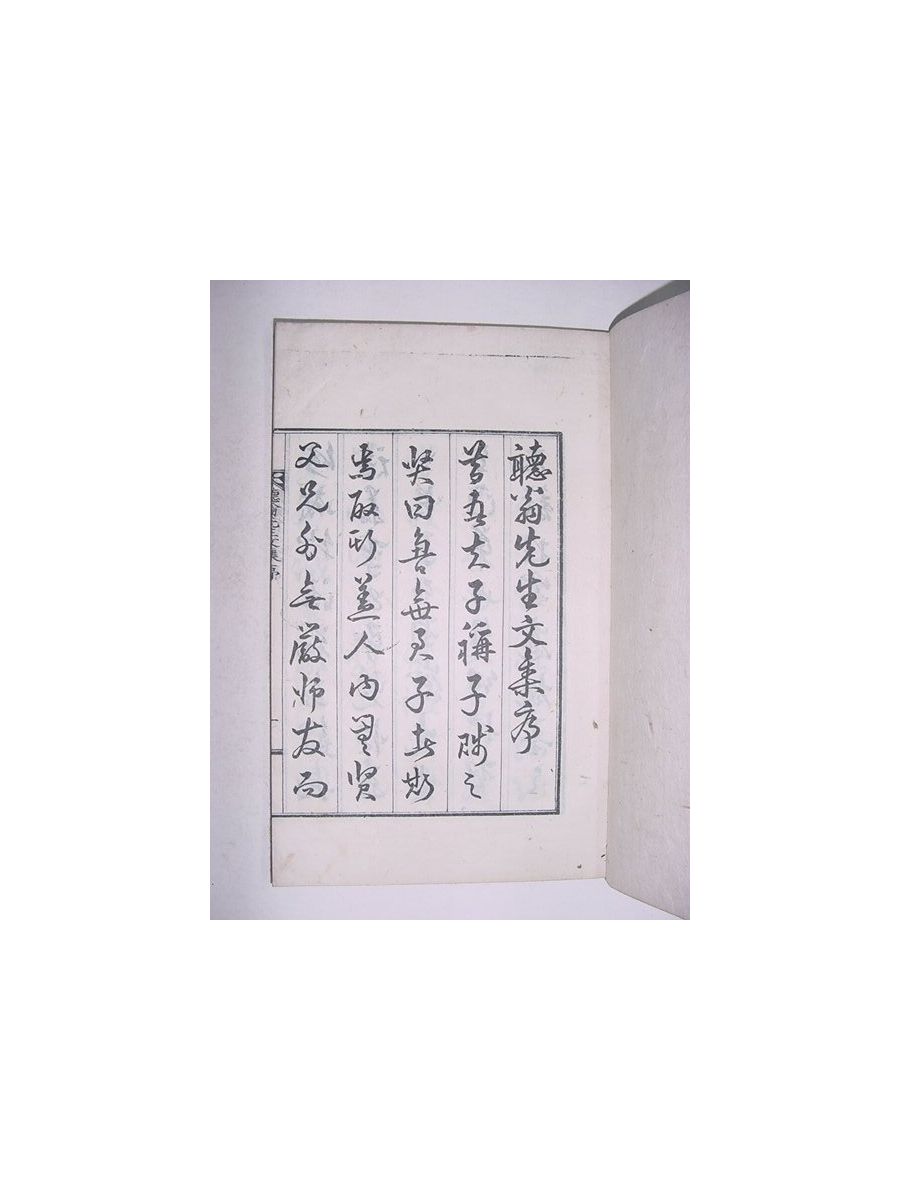 聽翁先生文集序
昔吾夫子稱子賤之
賢曰魯無君子者斯
焉取斯盖人內無賢
父兄外無嚴師友而
聽翁先生文集序